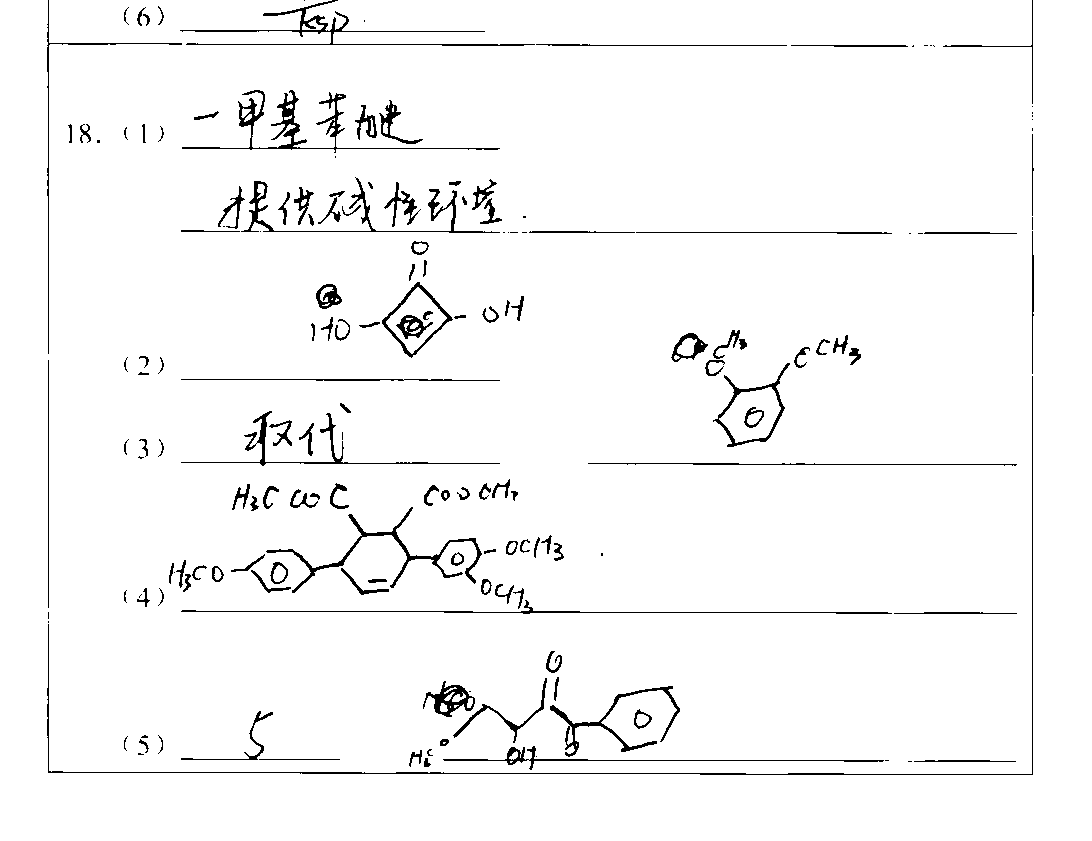 (6) Ksp
18. (1) 一甲基苯醚
提供碱性环境.
O
HO OH
(2)
CH3 O CCH3
(3) 取代
H3C COOC COOCH3
H3CO OCH3
(4) OCH3
O
(5) 5 OH O